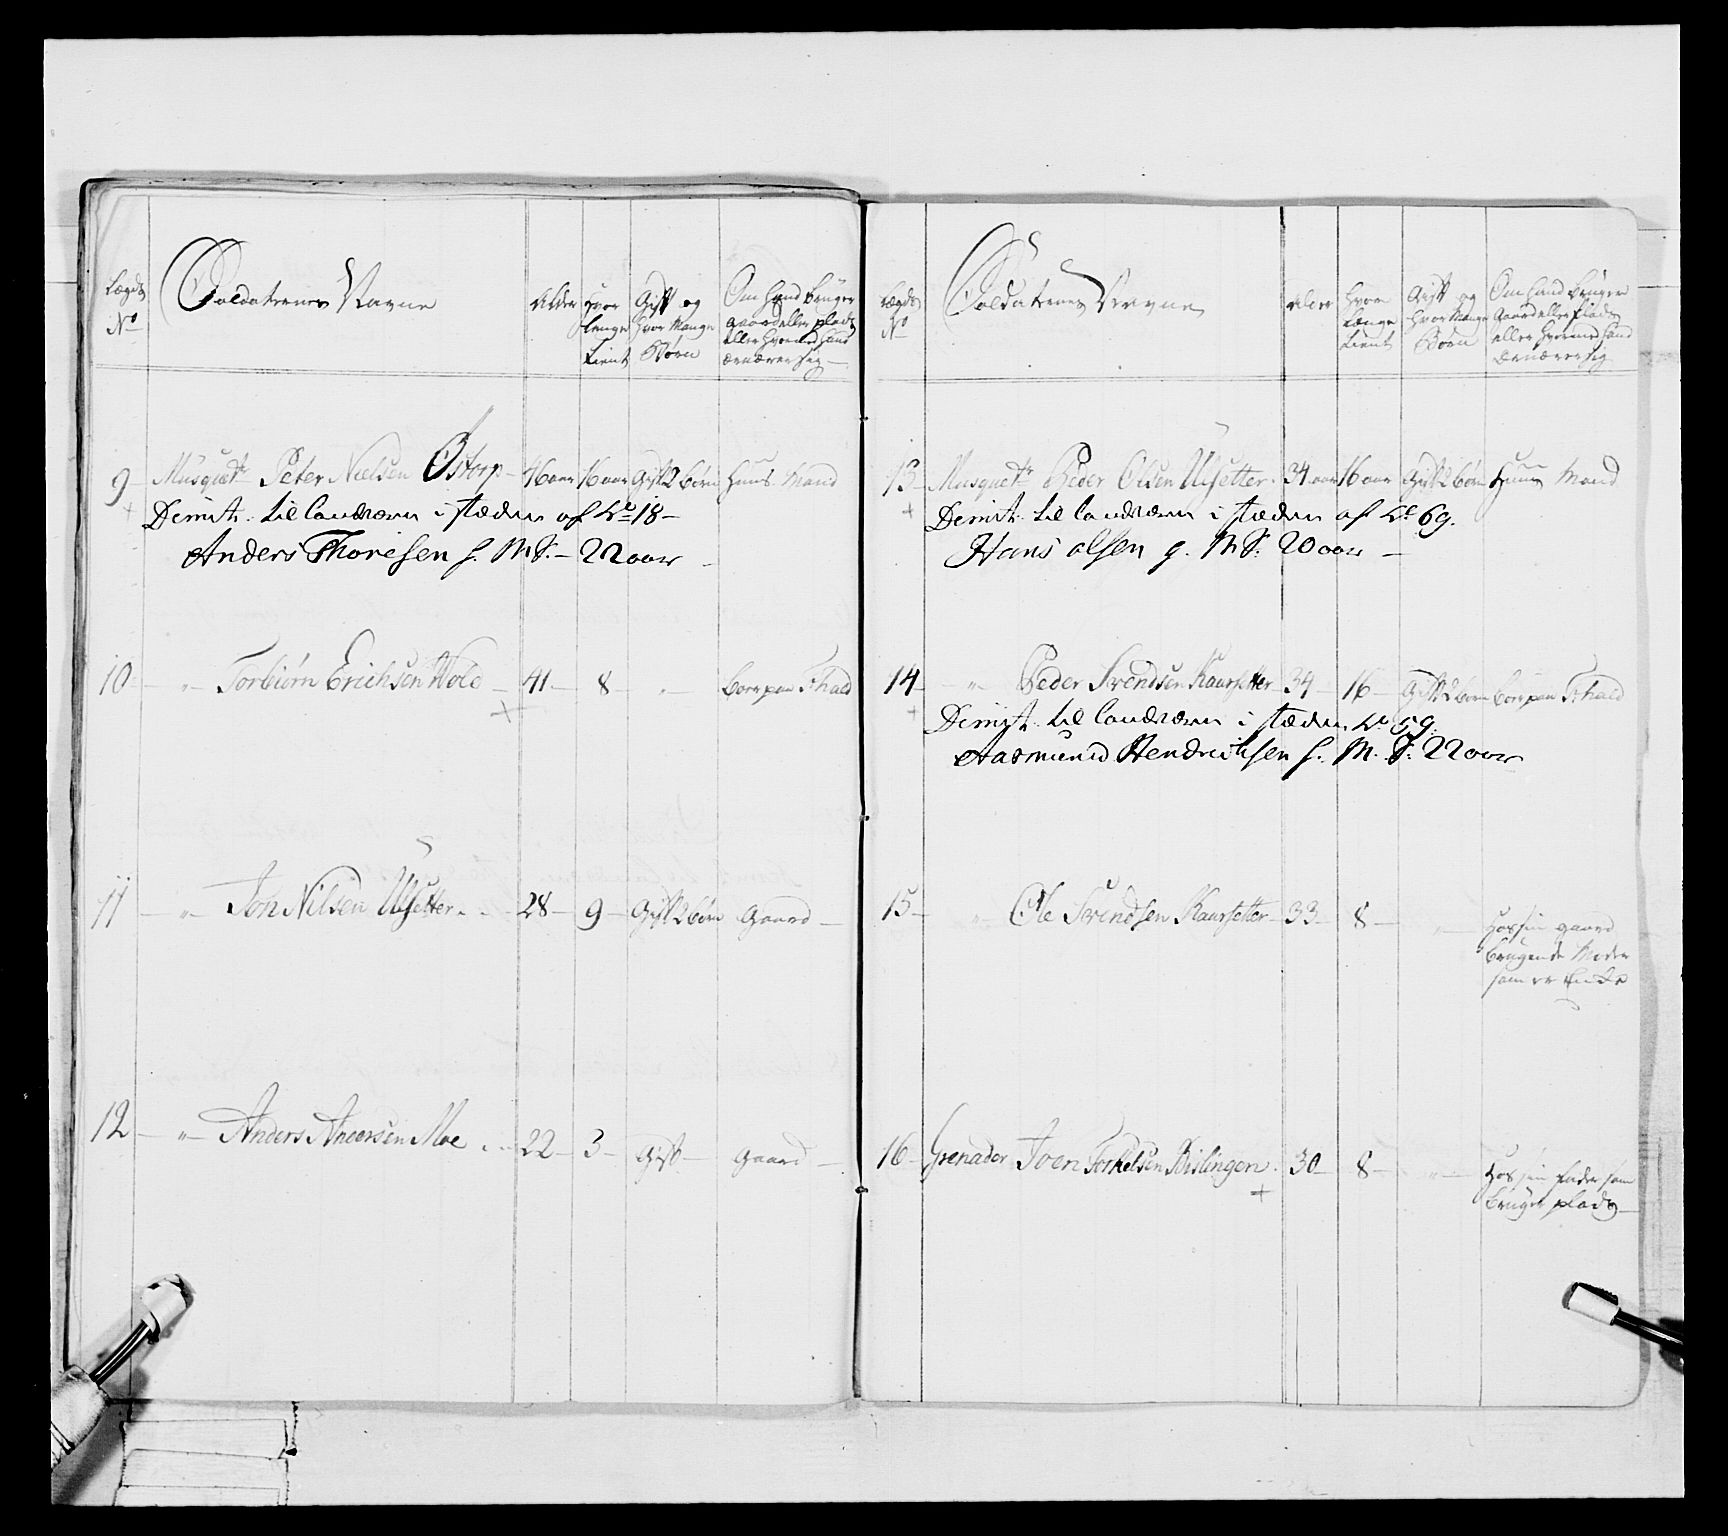 Lægds No
Soldaternes Navne
Alder
Hvor lenge tient
Gift og hvor mange Børn
Om hand bruger gaard eller plads eller hvormed hand ernærer sig
9 Musquetr Peter Nielsen Østorp 46 aar 16 aar Gift 2 børn Huus Mand
Dimit. til landværn i stæden af No 18
Anders Thoresen g. M S. 22 aar
10 " Torbiørn Erichsen Wold 41 8 " børe paa
11 " Jon Nilsen Ulsetter 28 9 Gift 2 børn Gaard
12 " Anders Andersen Moe 22 3 Gift Gaard
Lægds No
Soldaternes Navne
Alder
Hvor længe tient
Gift og hvor mange Børn
Om hand bruger Gaard eller Plads eller hvormed hand ernærer sig
13 Musquetr Peder Olsen Ulsetter 34 aar 16 aar Gift 2 børn Huus Mand
Dimit. til landværn i stæden af No 69.
Hans olsen g. M S. 20 aar
14 " Peder Svendsen Kaursetter 34 16 Gift 2 børn
Dimit. til landværn i stæden No 59.
Aasmund Hendrichsen g. M. S. 22 aar
15 " Ole Svendsen Kaursetter 33 8 " Hos sin gaard
brugende Moder
som er Enke
16 Grenader Joen Torkelsen Bislingen 30 8 " Hos sin fader som
bruger plads